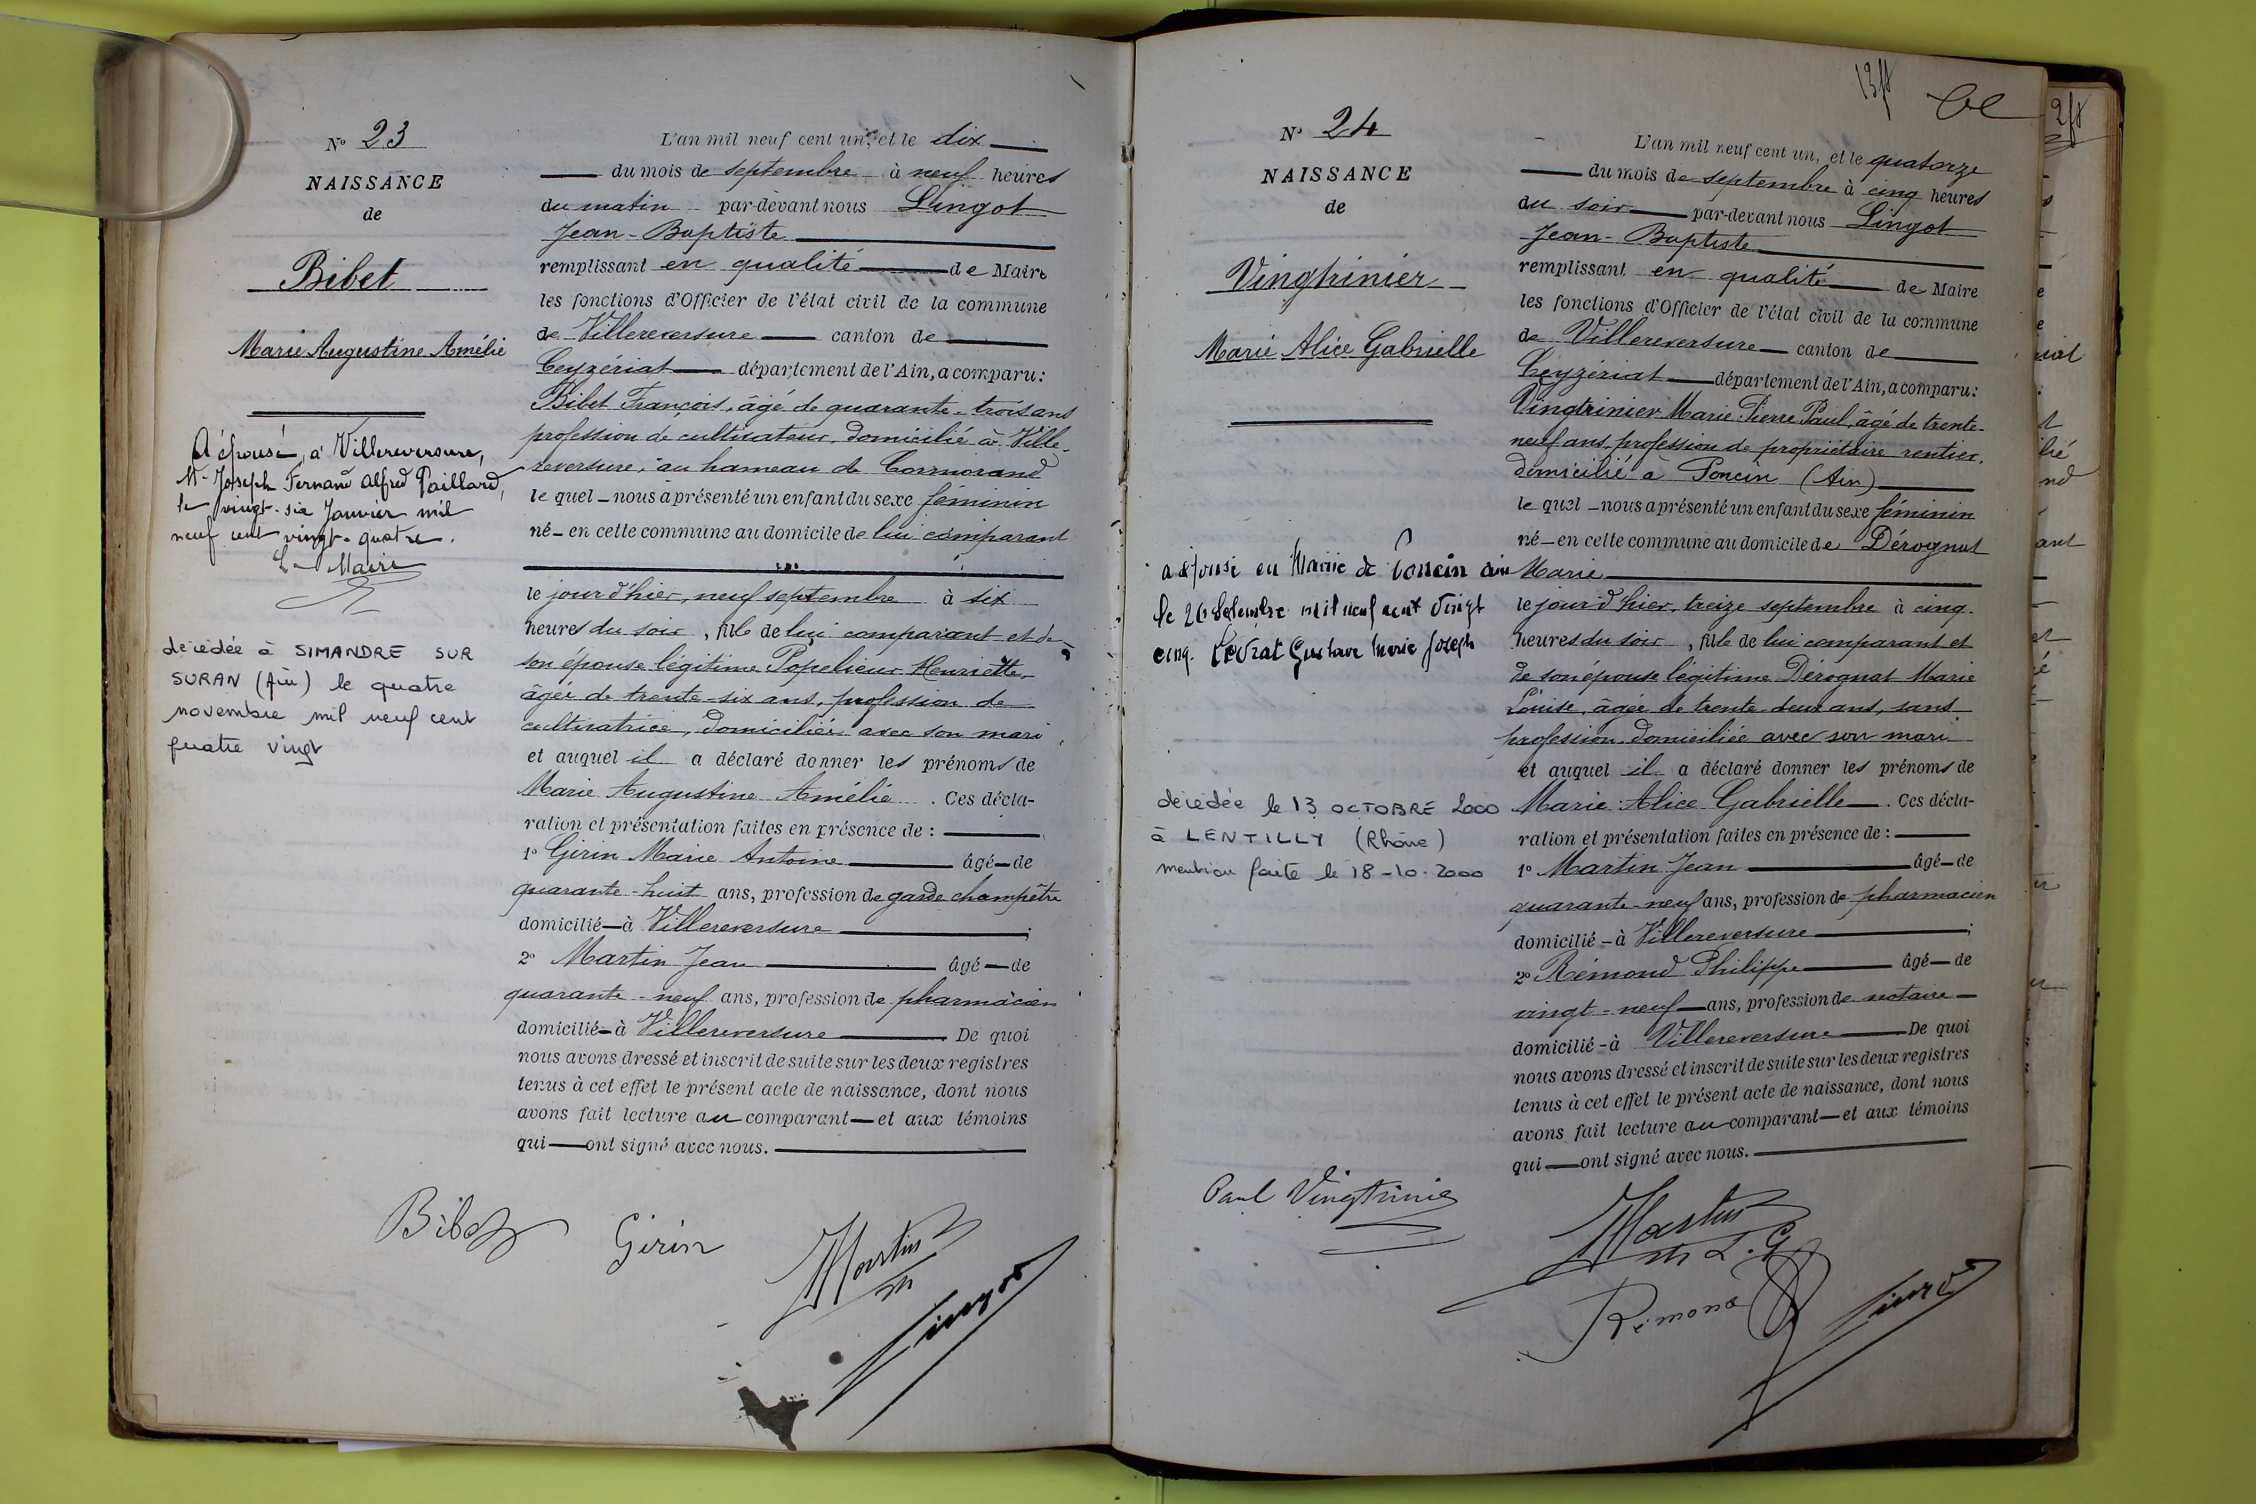 N° 23
NAISSANCE
de
Bibet
Marie Augustine Amélie
A épousé, à Villereversure,
Mr Joseph Fernand Alfred Paillard,
le vingt-six Janvier mil
neuf cent vingt-quatre.
Le Maire
décédée à SIMANDRE SUR
SURAN (Ain) le quatre
novembre mil neuf cent
quatre vingt
L'an mil neuf cent un, et le dix
du mois de septembre à neuf heures
du matin par-devant nous Lingot
Jean-Baptiste
remplissant en qualité de Maire
les fonctions d'Officier de l'état civil de la commune
de Villereversure canton de
Ceyzériat département de l'Ain, a comparu:
Bibet François, âgé de quarante-trois ans
profession de cultivateur, domicilié à Ville-
reversure, au hameau de Cormorand
le quel nous a présenté un enfant du sexe féminin
né en cette commune au domicile de lui comparant
le jour d'hier, neuf septembre à six
heures du soir, fille de lui comparant et de
son épouse légitime Popelieur Henriette,
âgée de trente-six ans, profession de
cultivatrice, domiciliée avec son mari,
et auquel il a déclaré donner les prénoms de
Marie Augustine Amélie. Ces décla-
ration et présentation faites en présence de :
1° Girin Marie Antoine âgé de
quarante-huit ans, profession de garde champêtre
domicilié à Villereversure;
2° Martin Jean âgé de
quarante-neuf ans, profession de pharmacien
domicilié à Villereversure. De quoi
nous avons dressé et inscrit de suite sur les deux registres
tenus à cet effet le présent acte de naissance, dont nous
avons fait lecture au comparant et aux témoins
qui ont signé avec nous.
Bibet Girin Martin
Lingot
13 ff
N° 24
NAISSANCE
de
Vingtrinier
Marie Alice Gabrielle
a épousé en Mairie de Poncin Ain
le 26 septembre mil neuf cent vingt
cinq. Levrat Gustave Marie Joseph
décédée le 13 OCTOBRE 2000
à LENTILLY (Rhône)
mention faite le 18-10-2000
L'an mil neuf cent un, et le quatorze
du mois de septembre à cinq heures
du soir par-devant nous Lingot
Jean-Baptiste
remplissant en qualité de Maire
les fonctions d'Officier de l'état civil de la commune
de Villereversure canton de
Ceyzériat département de l'Ain, a comparu:
Vingtrinier Marie Pierre Paul, âgé de trente-
neuf ans, profession de propriétaire rentier,
domicilié à Poncin (Ain)
le quel nous a présenté un enfant du sexe féminin
né en cette commune au domicile de Dérognat
Marie
le jour d'hier, treize septembre à cinq
heures du soir, fille de lui comparant et
de son épouse légitime Dérognat Marie
Louise, âgée de trente-deux ans, sans
profession domiciliée avec son mari
et auquel il a déclaré donner les prénoms de
Marie Alice Gabrielle. Ces décla-
ration et présentation faites en présence de :
1° Martin Jean âgé de
quarante-neuf ans, profession de pharmacien
domicilié à Villereversure;
2° Rémond Philippe âgé de
vingt-neuf ans, profession de notaire
domicilié à Villereversure. De quoi
nous avons dressé et inscrit de suite sur les deux registres
tenus à cet effet le présent acte de naissance, dont nous
avons fait lecture au comparant et aux témoins
qui ont signé avec nous.
Paul Vingtrinier
Martin
Rémond
Lingot